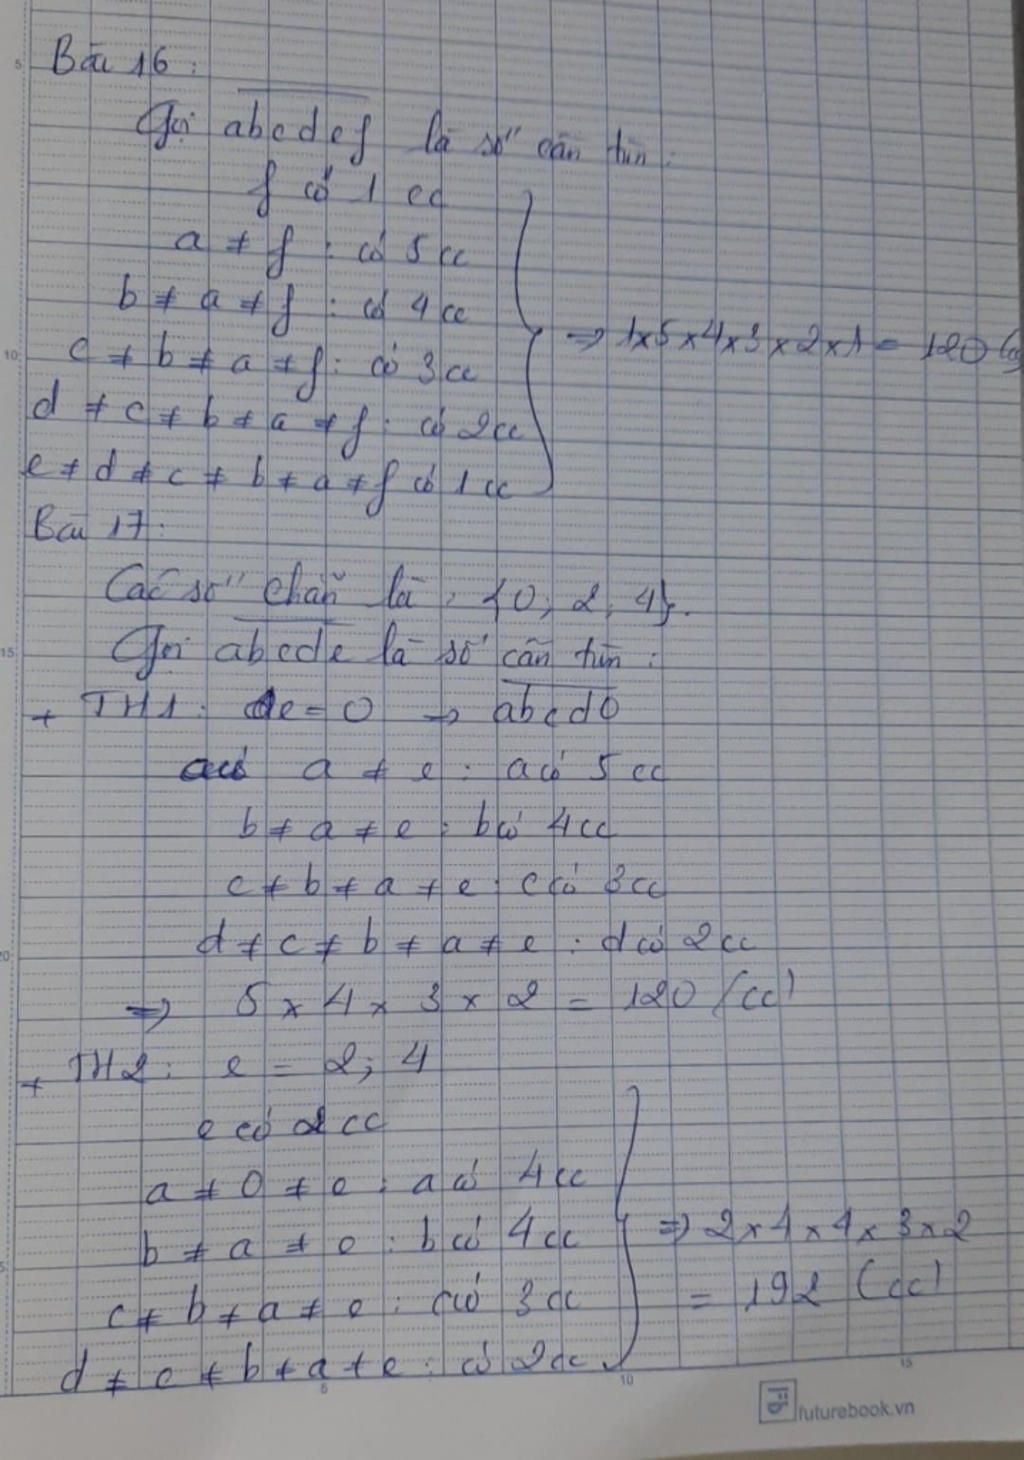 Bài 16:
Gọi abcdef là số cần tìm:
f có 1 cc
a ≠ f : có 5 cc
b ≠ a ≠ f : có 4 cc
c ≠ b ≠ a ≠ f : có 3 cc
d ≠ c ≠ b ≠ a ≠ f : có 2 cc
e ≠ d ≠ c ≠ b ≠ a ≠ f có 1 cc
⇒ 1 x 5 x 4 x 3 x 2 x 1 = 120
Bài 17:
Các số chẵn là : {0; 2; 4}.
Gọi abcde là số cần tìm :
+ TH1: e = 0 → abcd0
a ≠ e : a có 5 cc
b ≠ a ≠ e : b có 4 cc
c ≠ b ≠ a ≠ e : c có 3 cc
d ≠ c ≠ b ≠ a ≠ e : d có 2 cc
⇒ 5 x 4 x 3 x 2 = 120 (cc)
+ TH2: e = 2; 4
e có 2 cc
a ≠ 0 ≠ e : a có 4 cc
b ≠ a ≠ e : b có 4 cc
c ≠ b ≠ a ≠ e : c có 3 cc
d ≠ c ≠ b ≠ a ≠ e : có 2 cc
⇒ 2 x 4 x 4 x 3 x 2
= 192 (cc)
5
10
15
20
5
5
10
15
futurebook.vn